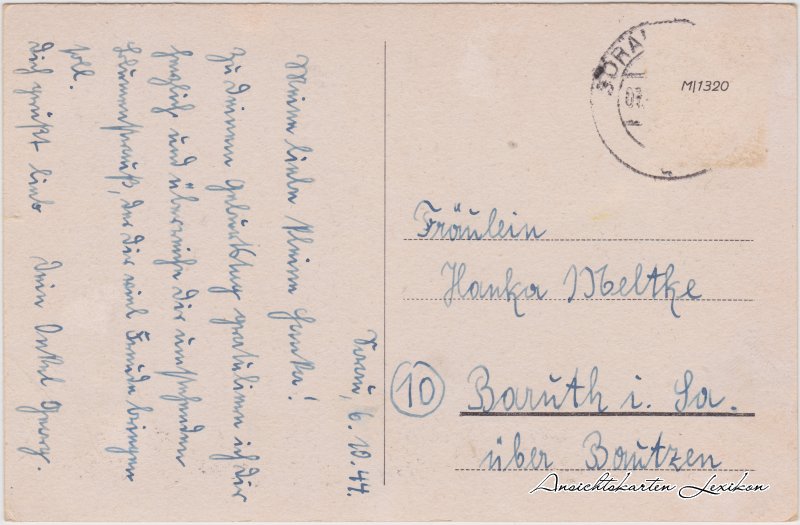 Sorau, 6.10.44.
Meine liebe kleine Hanka!
Zu Deinem Geburtstag gratuliere ich Dir
herzlich und überreiche Dir umstehenden
Blumenstrauß, der Dir viel Freude bringen
soll.
Dich grüßt lieb Dein Onkel Georg.
SORAU
M|1320
Fräulein
Hanka Meltke
10 Baruth i. Sa.
über Bautzen
Ansichtskarten Lexikon